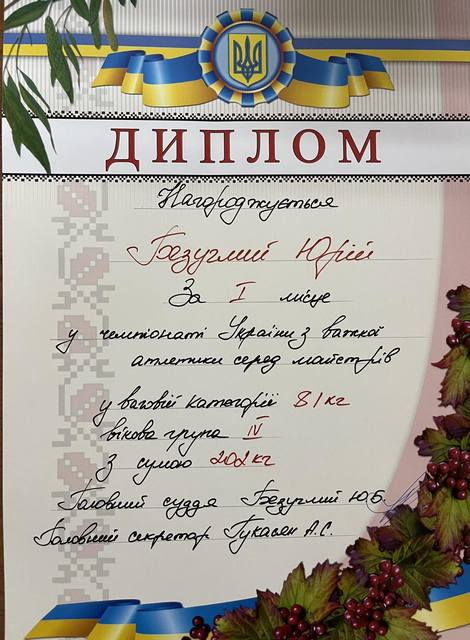 ДИПЛОМ
Нагороджується
Безуглий Юрій
За I місце
у чемпіонаті України з важкої
атлетики серед майстрів
у ваговій категорії 81 кг
вікова група IV
З сумою 202 кг
Головний суддя Безуглий Ю.Б.
Головний секретар Гукасян А.С.